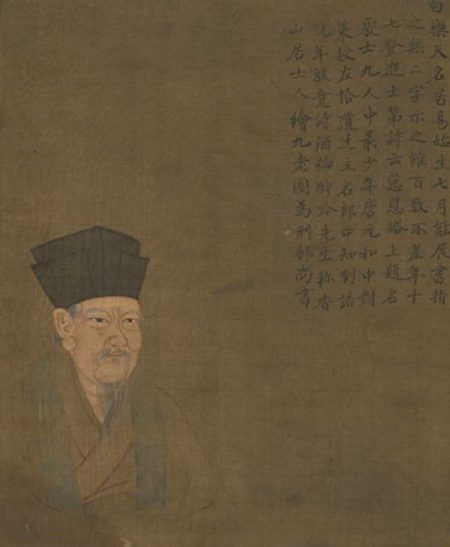 白樂天名居易始生七月能展書指
之無二字示之雖百數不差年十
七登進士第詩云慈恩塔上題名
處人中最少年唐元和中對
策授左拾遺迁主名郎中知制誥
晚年放意詩酒吟先生称香
山居士人繪九老圖為刑部尚書